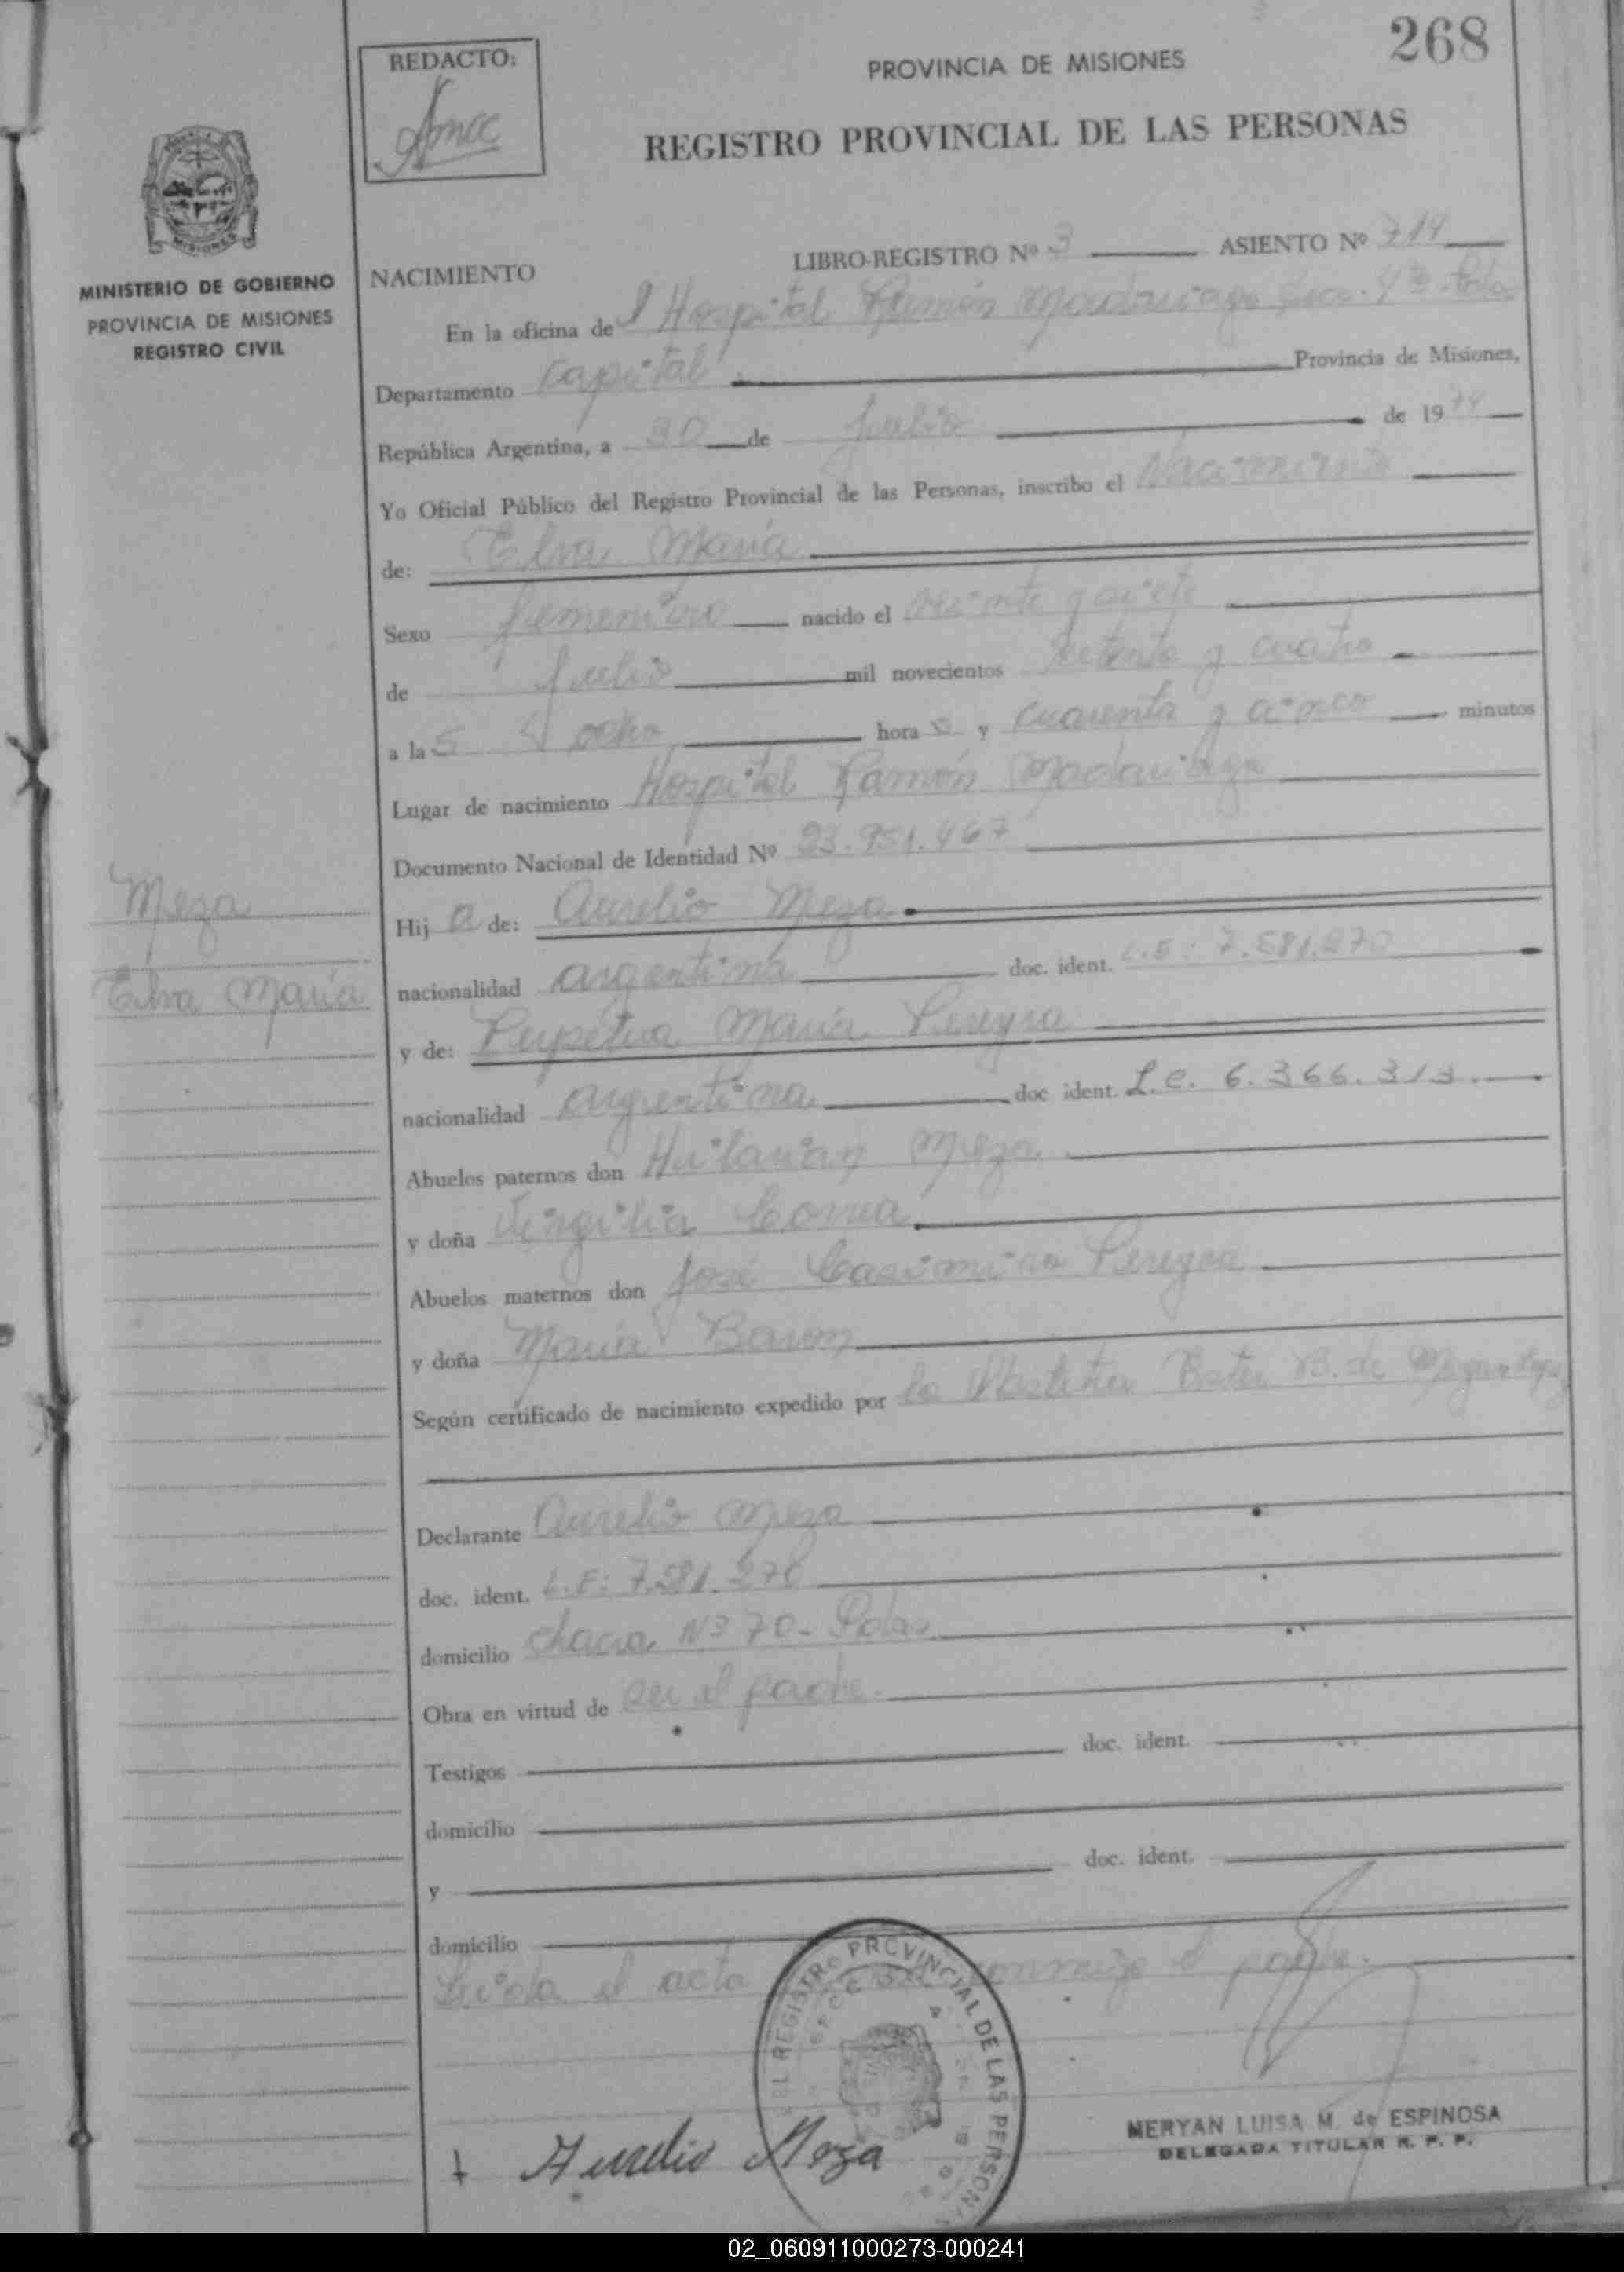 268
REDACTO:
PROVINCIA DE MISIONES
REGISTRO PROVINCIAL DE LAS PERSONAS
MISIONES
MINISTERIO DE GOBIERNO
PROVINCIA DE MISIONES
REGISTRO CIVIL
NACIMIENTO
LIBRO-REGISTRO Nº 3 ASIENTO Nº 714
En la oficina del Hospital Ramón Madariaga Secc. 4ta. Pdas
Departamento Capital Provincia de Misiones,
República Argentina, a 30 de Julio de 1974
Yo Oficial Público del Registro Provincial de las Personas, inscribo el Nacimiento
de: Elva María
Sexo femenino nacido el veinte y siete
de Julio mil novecientos setenta y cuatro
a las ocho hora s y cuarenta y cinco minutos
Lugar de nacimiento Hospital Ramón Madariaga
Documento Nacional de Identidad Nº 23.951.467
Meza
Hij a de: Aurelio Meza
Elva María
nacionalidad argentina doc. ident. L.E: 7.581.270
y de: Perpetua María Pereyra
nacionalidad argentina doc ident. L.C. 6.366.313
Abuelos paternos don Meza
y doña Virgilia
Abuelos maternos don José Casimiro Pereyra
y doña María Baron
Según certificado de nacimiento expedido por la Ester B. de
Declarante Aurelio Meza
doc. ident. L.E: 7.581.270
domicilio chacra Nº 70 - Pdas
Obra en virtud de ser el padre.
Testigos doc. ident.
domicilio
y doc. ident.
domicilio
Leída el acta el padre.
EL REGISTRO PROVINCIAL DE LAS PERSON
Aurelio Meza
MERYAN LUISA M. de ESPINOSA
DELEGADA TITULAR R. P. P.
02_060911000273-000241